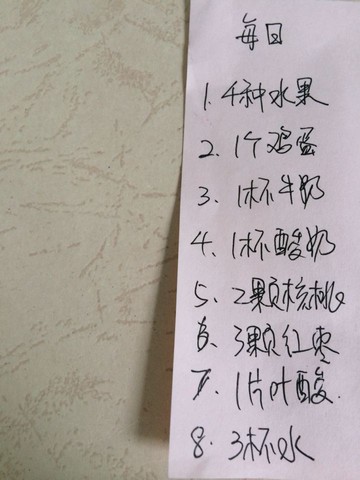 每日
1. 4种水果
2. 1个鸡蛋
3. 1杯牛奶
4. 1杯酸奶
5. 2颗核桃
6. 3颗红枣
7. 1片叶酸.
8. 3杯水